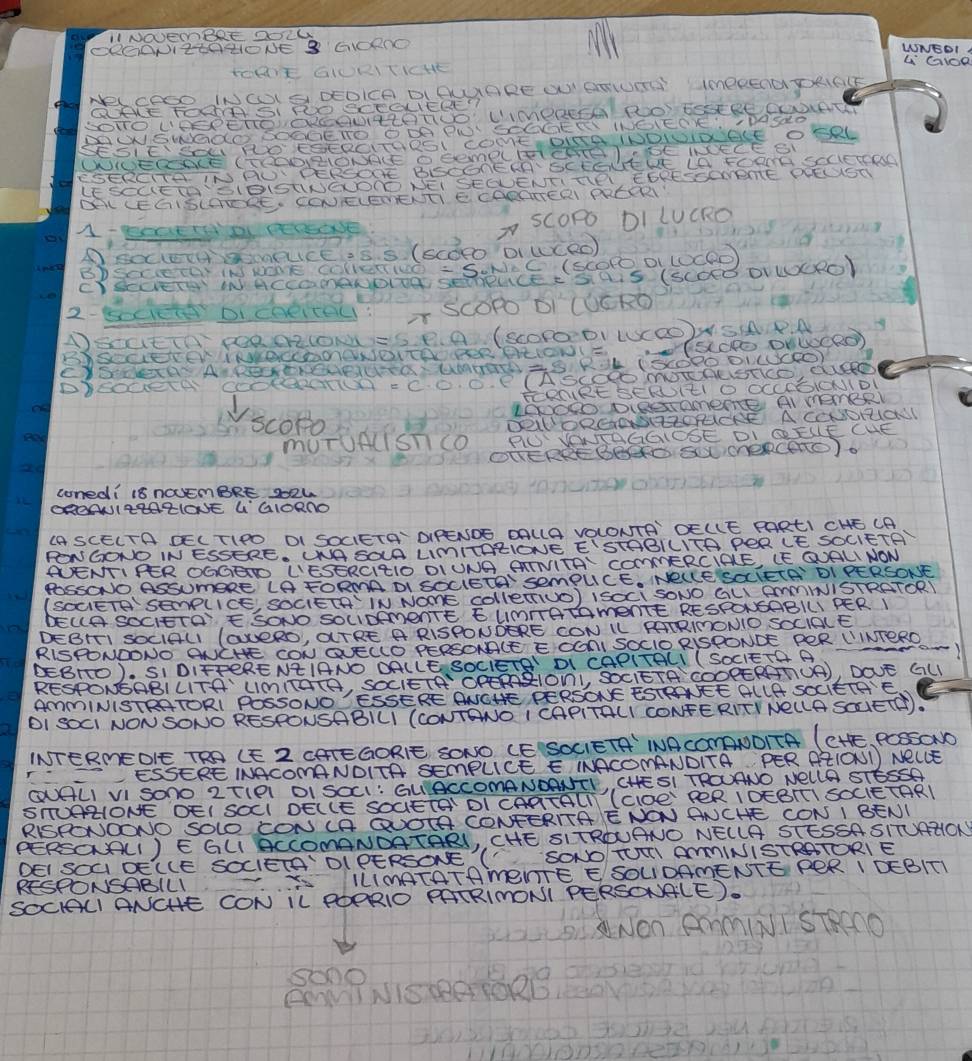 11 NOVEMBRE 2024
ORGANIZZAZIONE 3 GIORNO
LUNEDI
4' GIOR
FORME GIURITICHE
NEL CASO IN CUI SI DEDICA DI AVVIARE UN'ATTIVITA' IMPRENDITORIALE
QUALE FORMA SI PUO SCEGLIERE?
SOTTO L'ASPETTO ORGANIZZATIVO L'IMPRESA PUO' ESSERE AVVIATA
DA UN SINGOLO SOGGETTO O DA PIU' SOGGETTI INSIEME. DA SOLO
PUO ESERCITARSI COME DITTA INDIVIDUALE O SRL
UNIVERSALE (TRADIZIONALE O SEMPLIFICATA). SE INVECE SI
ESERCITA IN PIU' PERSONE BISOGNERA' SCEGLIERE LA FORMA SOCIETARIA
LE SOCIETA' SI DISTINGUONO NEI SEGUENTI TIPI, ESPRESSAMENTE PREVISTI
DAL LEGISLATORE, CON ELEMENTI E CARATTERI PROPRI:
1 - SOCIETA' DI PERSONE
SCOPO DI LUCRO
A) SOCIETA' SEMPLICE = S.S. (SCOPO DI LUCRO)
B) SOCIETA' IN NOME COLLETTIVO = S.N.C. (SCOPO DI LUCRO)
C) SOCIETA' IN ACCOMANDITA SEMPLICE = S.A.S (SCOPO DI LUCRO)
2 - SOCIETA' DI CAPITALI:
SCOPO DI LUCRO
A) SOCIETA' PER AZIONI = S.P.A (SCOPO DI LUCRO) S.A.P.A
B) SOCIETA' IN ACCOMANDITA PER AZIONI = (SCOPO DI LUCRO)
C) SOCIETA' A RESPONSABILITA' LIMITATA = S.R.L (SCOPO DI LUCRO)
D) SOCIETA' COOPERATIVA = C.O.O.P (A SCOPO MUTUALISTICO, OVVERO
FORNIRE SERVIZI O OCCASIONI DI
LAVORO DIRETTAMENTE AI MEMBRI
DELL'ORGANIZZAZIONE A CONDIZIONI
PIU' VANTAGGIOSE DI QUELLE CHE
OTTERREBBERO SUL MERCATO).
SCOPO
MUTUALISTICO
lunedí 18 NOVEMBRE 2024
ORGANIZZAZIONE 4' GIORNO
LA SCELTA DEL TIPO DI SOCIETA' DIPENDE DALLA VOLONTA' DELLE PARTI CHE LA
PONGONO IN ESSERE. UNA SOLA LIMITAZIONE E' STABILITA PER LE SOCIETA'
AVENTI PER OGGETTO L'ESERCIZIO DI UNA ATTIVITA' COMMERCIALE, LE QUALI NON
POSSONO ASSUMERE LA FORMA DI SOCIETA' SEMPLICE. NELLE SOCIETA' DI PERSONE
(SOCIETA' SEMPLICE, SOCIETA' IN NOME COLLETTIVO) I SOCI SONO GLI AMMINISTRATORI
DELLA SOCIETA' E SONO SOLIDAMENTE E LIMITATAMENTE RESPONSABILI PER I
DEBITI SOCIALI (OVVERO, OLTRE A RISPONDERE CON IL PATRIMONIO SOCIALE
RISPONDONO ANCHE CON QUELLO PERSONALE E OGNI SOCIO RISPONDE PER L'INTERO
DEBITO). SI DIFFERENZIANO DALLE SOCIETA' DI CAPITALI (SOCIETA' A
RESPONSABILITA' LIMITATA, SOCIETA' SOCIETA' COOPERATIVA), DOVE GLI
AMMINISTRATORI POSSONO ESSERE ANCHE PERSONE ESTRANEE ALLA SOCIETA' E
DI SOCI NON SONO RESPONSABILI (CONTANO I CAPITALI CONFERITI NELLA SOCIETA').
INTERMEDIE TRA LE 2 CATEGORIE SONO LE SOCIETA' INACOMANDITA (CHE POSSONO
ESSERE INACOMANDITA SEMPLICE E INACOMANDITA PER AZIONI) NELLE
QUALI VI SONO 2 TIPI DI SOCI: GLI ACCOMANDANTI, CHE SI TROVANO NELLA STESSA
SITUAZIONE DEI SOCI DELLE SOCIETA' DI CAPITALI (CIOE' PER I DEBITI SOCIETARI
RISPONDONO SOLO CON LA QUOTA CONFERITA E NON ANCHE CON I BENI
PERSONALI) E GLI ACCOMANDATARI, CHE SI TROVANO NELLA STESSA SITUAZION
DEI SOCI DELLE SOCIETA' DI PERSONE ( SONO TUTTI AMMINISTRATORI E
RESPONSABILI ILIMATATAMENTE E SOLIDAMENTE PER I DEBITI
SOCIALI ANCHE CON IL POPRIO PATRIMONI PERSONALE).
NON AMMINISTRANO
SONO
AMMINISTRATORI